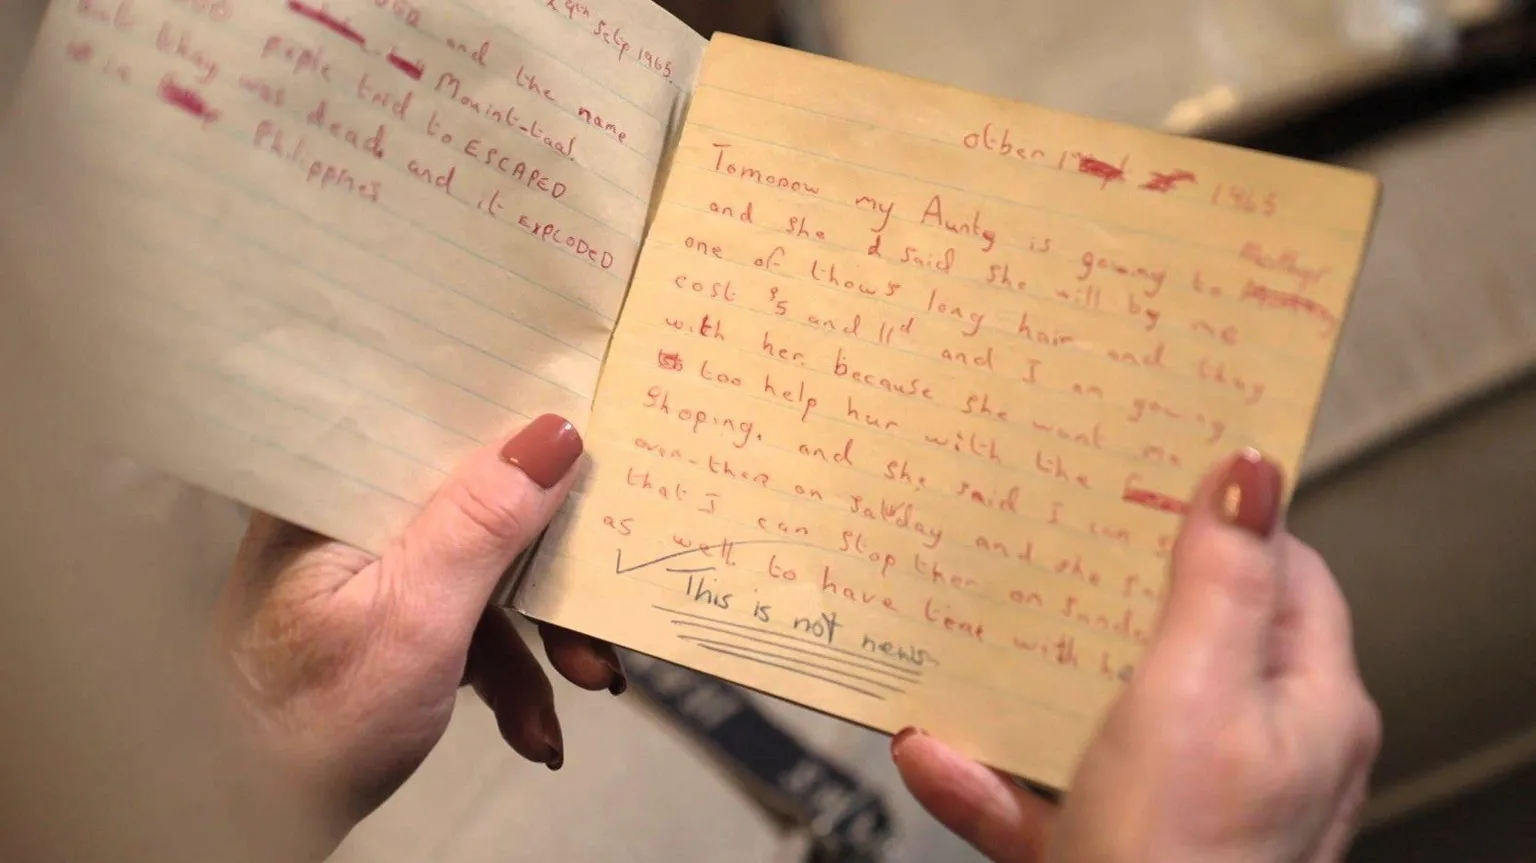 29th Setp 1965.
and the name
Mouint-taal.
people tried to ESCAPED
but thay was dead, and it EXPLODED
in Philippines
otber 1965
Tomorow my Aunty is gowing to
and she said she will by me
one of thows long hair and thay
cost $5 and 11d and I am gowing
with her. because she want me
too help hur with the
Shoping. and she said I can
over-ther on satday and she
that I can stop ther on sunda
as well to have teat with he
This is not news